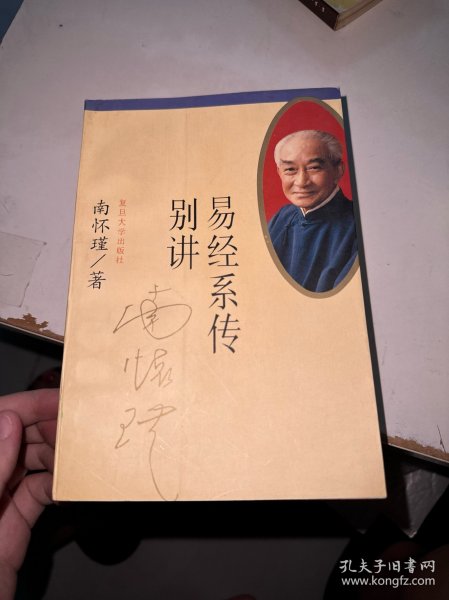 易经系传
别讲
南怀瑾/著
复旦大学出版社
南怀瑾
孔夫子旧书网
www.kongfz.com